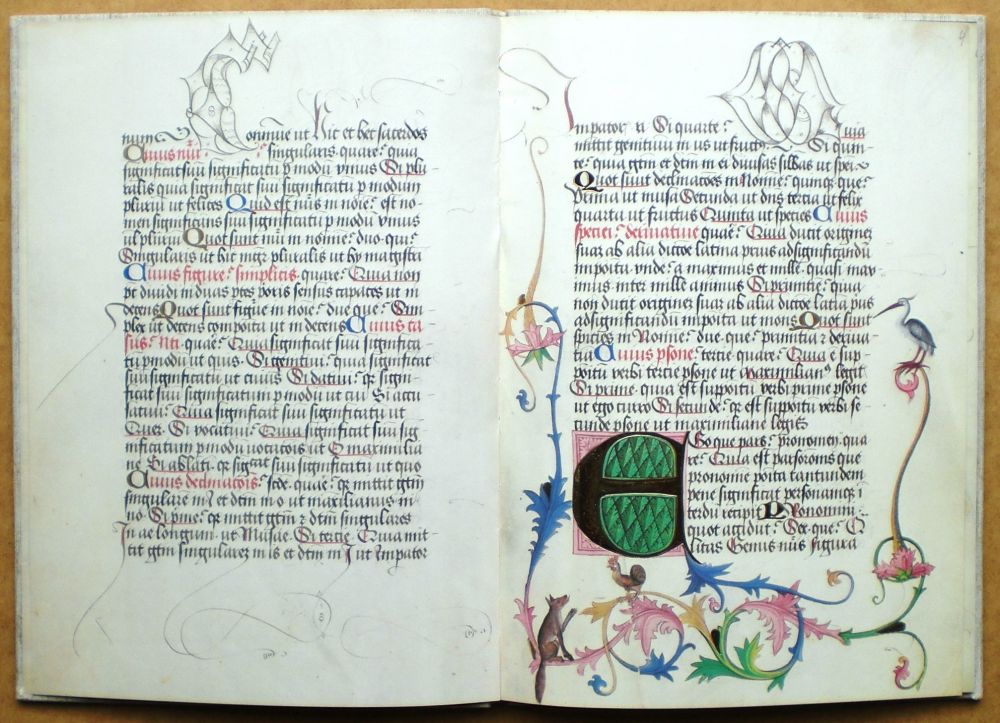 num Conmune ut hic et hec sacerdos
Cuius nūi singularis quare: quia
significat suū significatū p modū vnius Si plu
ralis quia significat suū significatū p modum
pluriū ut felices Quid est nūs in noie: est no
men significans suū significatū p modū vnius
ut plurium Quot sunt nūi in nomine: duo que:
Singularis ut hic mgr pluralis ut hy magistri
Cuius figure: simplicis quare: Quia non
pt diuidi in duas ptes sensus capaces ut
decens Quot sunt figure in noie: due que: Sim
plex ut decens composita ut indecens Cuius ca
sus: nti quare: Quia significat suū significa
tū p modū ut quis Si gentiui: quia significat
suū significatū ut cuius Si datiui: significat
ficat suū significatum p modū ut cui Si accu
satiui: Quia significat suū significatū ut
Quē Si vocatiui: Quia significat suū sig
nificatum p modū uocatois ut o maximilia
ne Si ablati: significat suū significatū ut quo
Cuius declinatois: scde quare: mittit gtm
singularē in i et dtm in o ut maxilianus ni
no Si pme: mittit gtm et dtm singulares
In ae longum ut Musae Si tercie: Quia mit
tit gtm singularez in is et dtm in i ut Imperator
Impator ri Si quarte: Quia
mittit genitiuū in us ut fructus Si quin
te: quia gtm et dtm in ei diuisas silbas ut speī
Quot sunt declinatoēs in Nomine: quinque que:
Prima ut musa Secunda ut dns tercia ut felix
quarta ut fructus Quinta ut species Cuius
speciei: deriuatiue quare: Quia ducit originez
suaz ab alia dictoe latina prius ad significandū
imposita vnde: a maximus et mille quasi max
imus inter mille animus Si primitiue: quia
non ducit originez suaz ab alia dictoe latina prius
ad significandū imposita ut mons Quot sunt
species in Nomine: due que: primitiua et deriua
tia Cuius psone: tercie quare: Quia e sup
positū verbi tercie psone ut Maximilianus legit
Si prime quia est suppositū verbi prime psone
ut ego curro Si secunde: est suppositū verbi se
cunde psone ut maximiliane legis
Ego que pars: pronomen qua
re: Quia est pars oronis que
pro nomine posita tantundem
pene significat personamque i
terdū recipit Pronomini
quot accidūt: Sex que: Q
litas Genus nūs figura
4